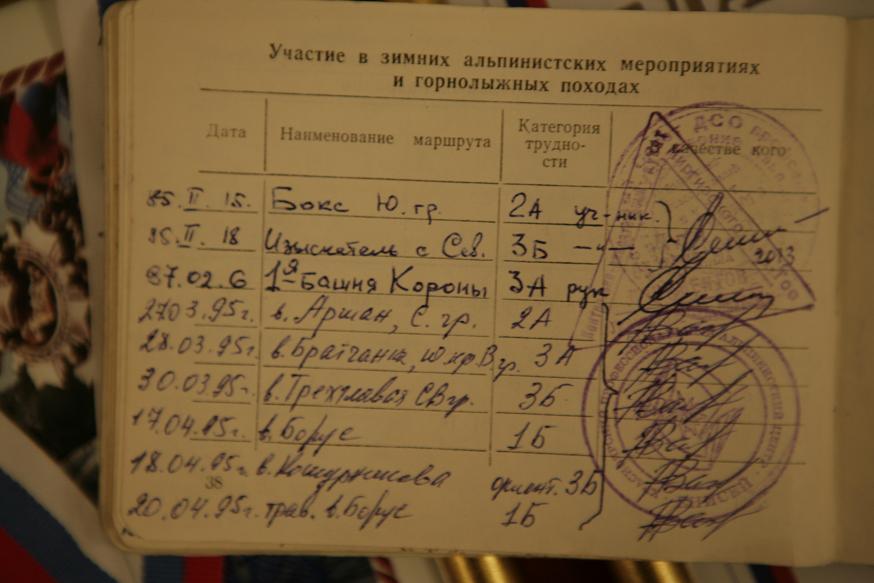 Участие в зимних альпинистских мероприятиях
и горнолыжных походах
Дата Наименование маршрута Категория трудно-сти качестве кого
85.II.15. Бокс Ю. гр. 2А уч-ник
85.II 18 Изыскатель с Сев. 3Б —"— 2013
87.02.6 1я Башня Короны 3А рук
27.03.95г. в. Аршан, С. гр. 2А
28.03.95г. в. Братчанка, гр. 3А
30.03.95г. в. Трехглавая СВгр. 3Б
17.04.95г. в. Борус 1Б
18.04.95г. в. Кошурникова ориент. 3Б
38
20.04.95г. трав. в. Борус 1Б
ДСО
ЕНИСЕЙ